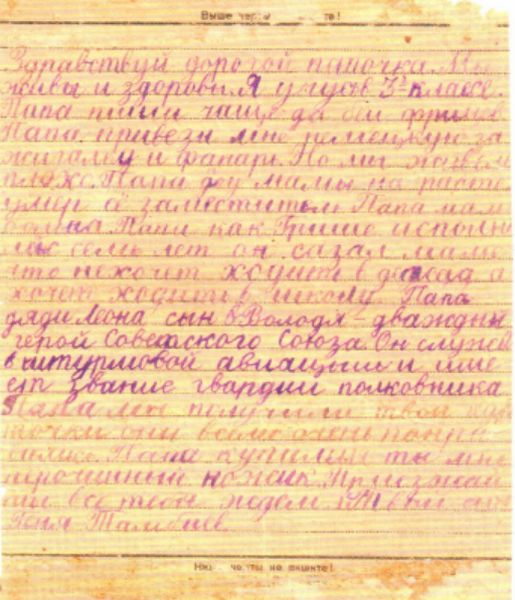 Выше черты не пишите!
Здравствуй дорогой папочка Мы
живы и здоровы Я учусь в 3м классе.
Папа пиши чаще да бей фрицев
Папа привези мне немецкую за
жигалку и фанарь. Но мы живём
плохо. Папа у мамы на работе
умер её заместитель Папа мам
больна Папа как Грише исполни
лось семь лет он сазал маме
что нехочет ходить в дасад а
хочет ходить в школу. Папа
дяди Леона сын Володя дважды
герой Советского Союза. Он служе
в штурмовой авиации и име
ет звание гвардии полковника
Папа мы получили твои кар
точки они всеме очень понра
вились. Папа купил ли ты мне
перочинный ножик Приезжай
мы все тебя ждем Твой сын
Геня Тамбиев.
Ниже черты не пишите!